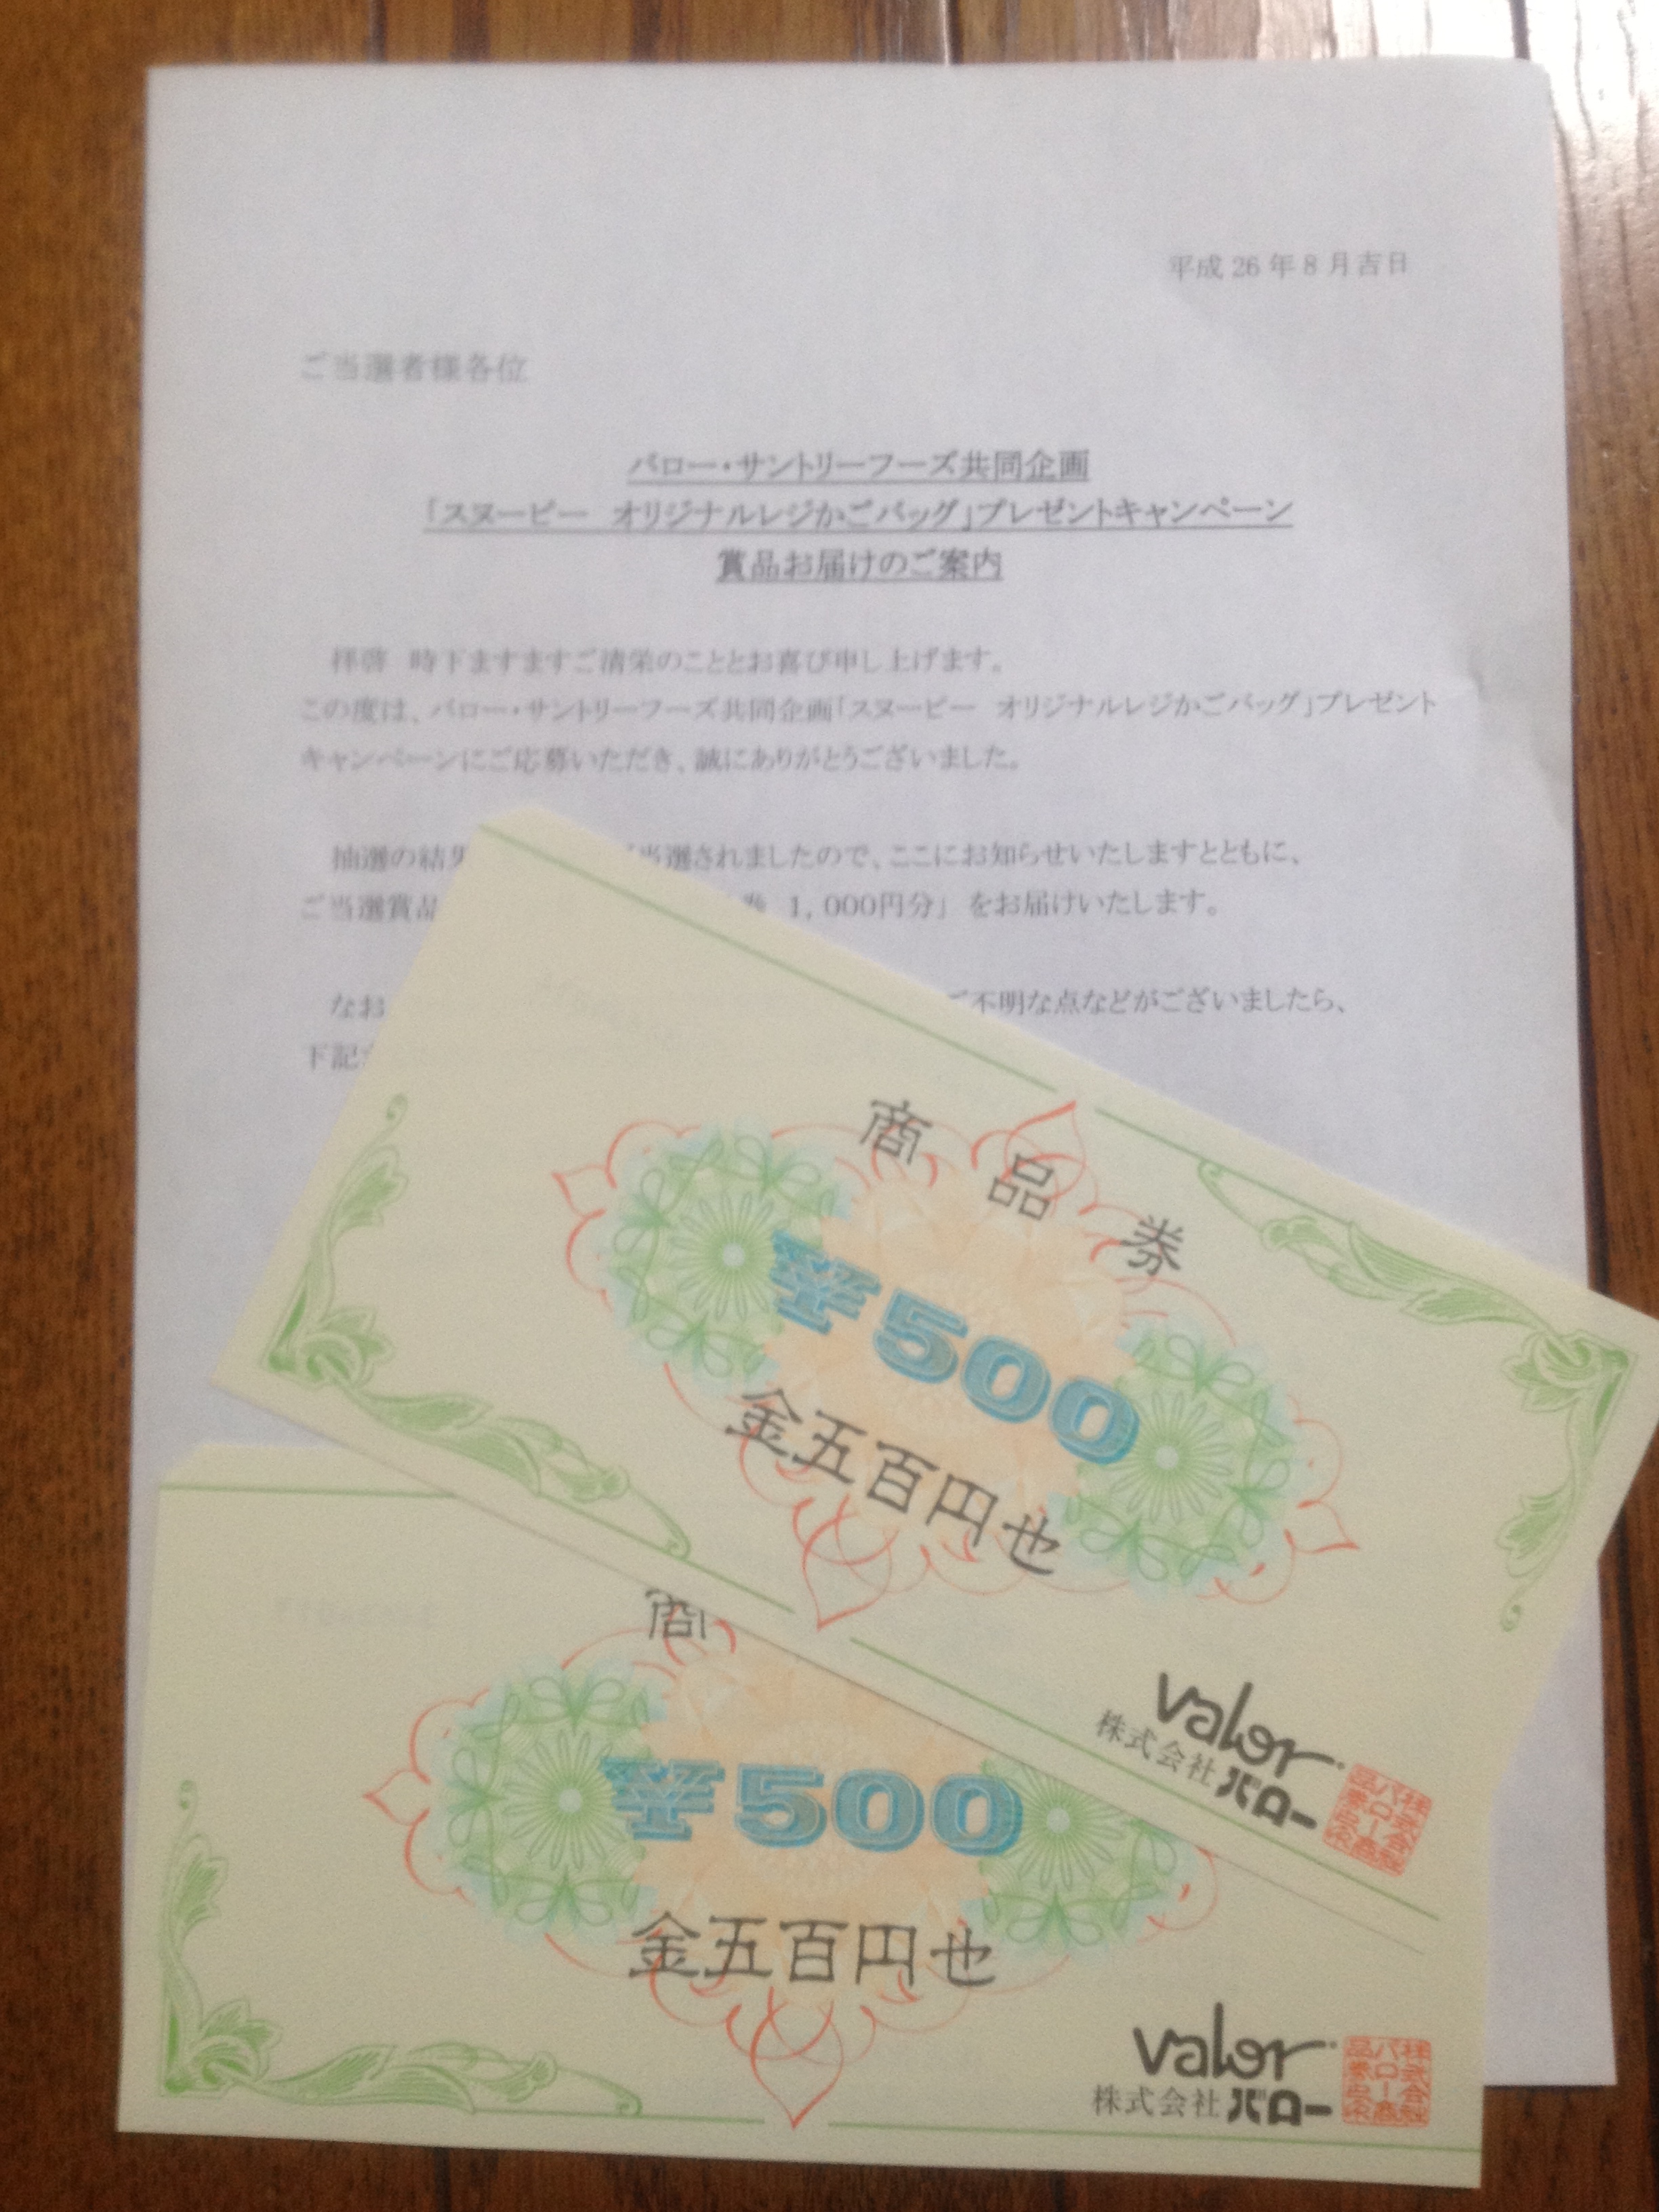 平成 26 年 8 月吉日
ご当選者様各位
バロー・サントリーフーズ共同企画
「スヌーピー　オリジナルレジかごバッグ」プレゼントキャンペーン
賞品お届けのご案内
拝啓　時下ますますご清栄のこととお喜び申し上げます。
この度は、バロー・サントリーフーズ共同企画「スヌーピー　オリジナルレジかごバッグ」プレゼント
キャンペーンにご応募いただき、誠にありがとうございました。
抽選の結 当選されましたので、ここにお知らせいたしますとともに、
ご当選賞品 券 1,000円分」 をお届けいたします。
なお ご不明な点などがございましたら、
下記
商品券
¥500
金五百円也
valor
株式会社バロー
株式会社バロー商品券
商
¥500
金五百円也
valor
株式会社バロー
株式会社バロー商品券